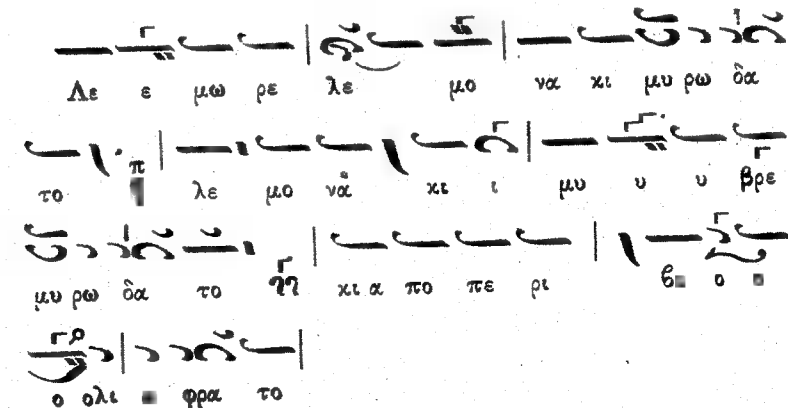 Λε ε μω ρε λε μο να κι μυ ρω δα
το π λε μο να κι ι μυ υ υ βρε
μυ ρω δα το κι α πο πε ρι β ο
ο ολι φρα το